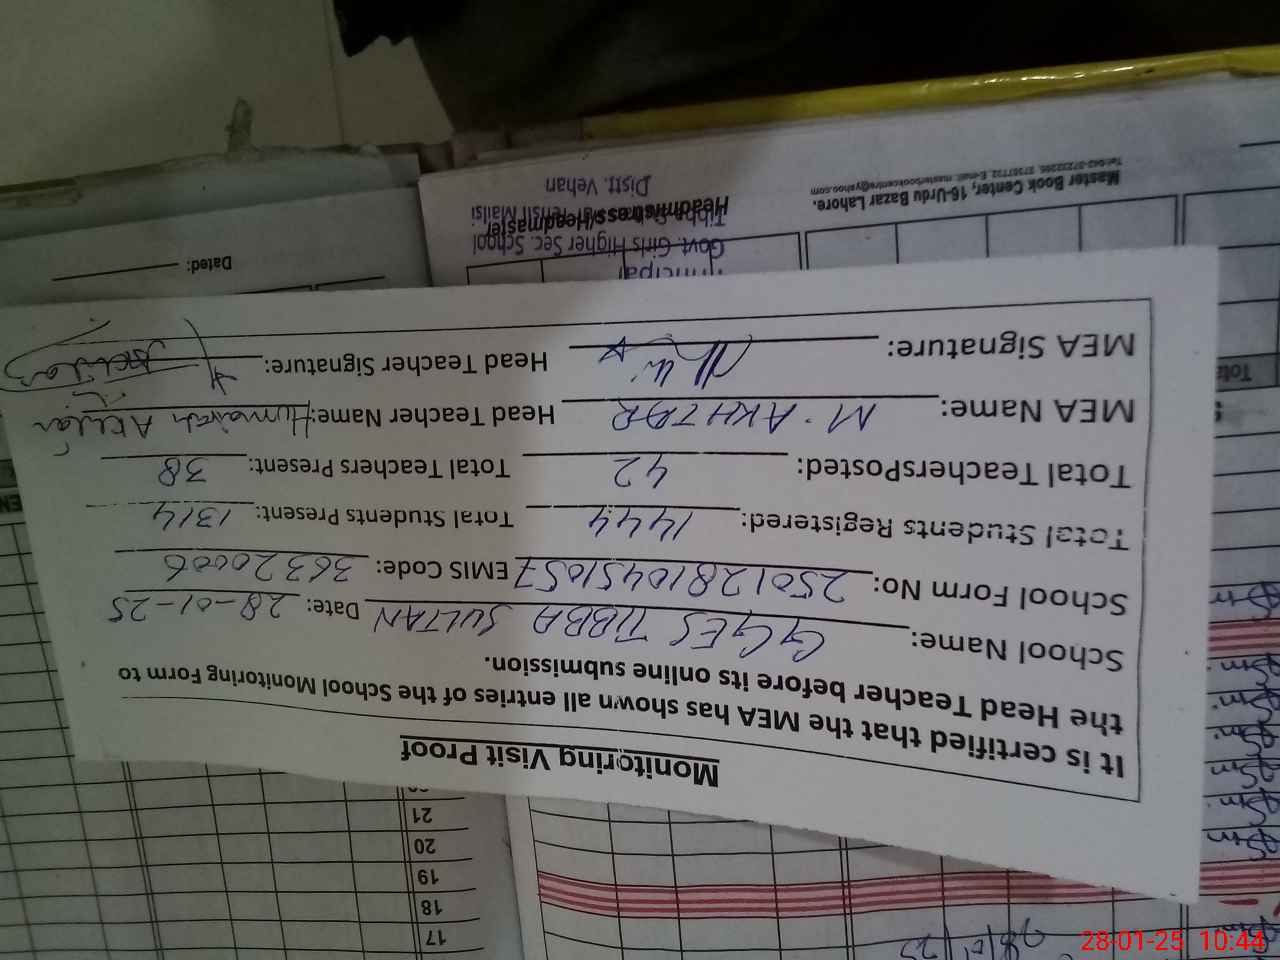 Monitoring Visit Proof
It is certified that the MEA has shown all entries of the School Monitoring Form to
the Head Teacher before its online submission.
School Name: GGES TIBBA SULTAN Date: 28-01-25
School Form No: 25012810451057 EMIS Code: 36320006
Total Students Registered: 1444 Total Students Present: 1314
Total TeachersPosted: 42 Total Teachers Present: 38
MEA Name: M. AKHTAR Head Teacher Name: Humairah
MEA Signature: Head Teacher Signature:
Principal
Govt. Girls Higher Sec. School
Headmistress/Headmaster
Distt. Vehari
Master Book Center, 16-Urdu Bazar Lahore.
Dated:
17
18
19
20
21
28-01-25 10:44